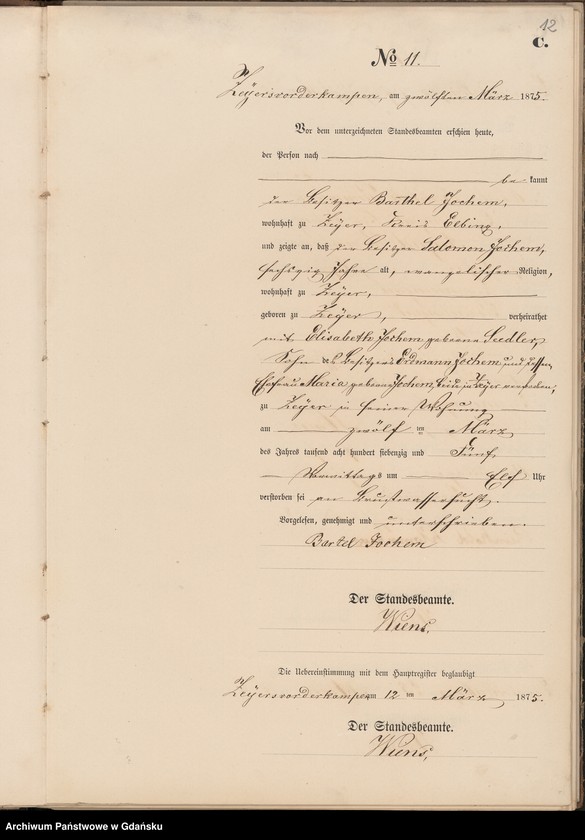 12
C.
No 11.
Zeyersvorderkampen, am zwölften März 1875.
Vor dem unterzeichneten Standesbeamten erschien heute,
der Person nach
be kannt
der Besitzer Barthel Jochem,
wohnhaft zu Zeyer, Kreis Elbing,
und zeigte an, daß der Besitzer Salomon Jochem,
sechszig Jahre alt, evangelischer Religion,
wohnhaft zu Zeyer,
geboren zu Zeyer, verheirathet
mit Elisabeth Jochem geborene Seedler,
Sohn des Besitzers Erdmann Jochem und dessen
Ehefrau Maria geborene Jochem, beide zu Zeyer verstorben,
zu Zeyer in seiner Wohnung
am zwölf ten März
des Jahres tausend acht hundert siebenzig und Fünf
Vormittags um Elf Uhr
verstorben sei an Brustwassersucht.
Vorgelesen, genehmigt und unterschrieben.
Bartel Jochem
Der Standesbeamte.
Wiens,
Die Uebereinstimmung mit dem Hauptregister beglaubigt
Zeyersvorderkampen am 12 ten März 1875.
Der Standesbeamte.
Wiens,
Archiwum Państwowe w Gdańsku